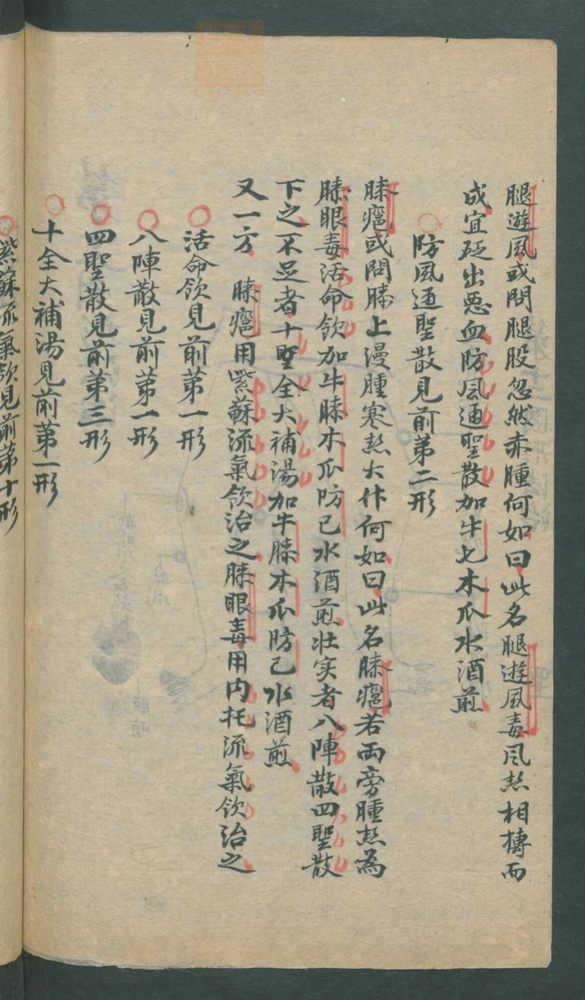 腿遊風或問腿股忽然赤腫何如曰此名腿遊風毒風热相摶而
成宜砭出惡血防風通聖散加牛七木瓜水酒煎
防風通聖散見前第二形
膝癰或問膝上漫腫寒热大作何如曰此名膝癰若両旁腫热為
膝眼毒活命飲加牛膝木瓜防己水酒煎壮实者八陣散四聖散
下之不足者十聖全大補湯加牛膝木瓜防己水酒煎
又一方 膝癰用紫蘇流氣飲治之膝眼毒用内托流氣飲治之
活命飲見前第一形
八陣散見前第一形
四聖散見前第三形
十全大補湯見前第一形
紫蘇流氣飲見前第十形